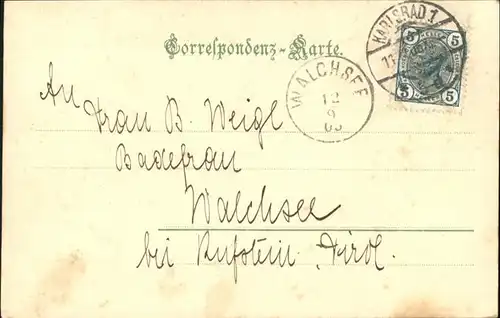 KARLSBAD 1
5 5
11
Correspondenz-Karte.
5 5
WALCHSEE
12
9
03
An
Frau B. Weigl
Badefrau
Walchsee
bei Kufstein. Tirol.